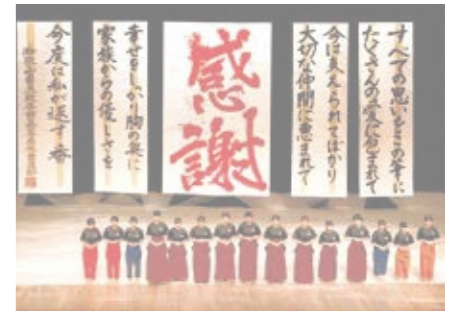 すべての思いをこの筆に
たくさんの愛に包まれて
今は支えられてばかり
大切な仲間に恵まれて
感謝
幸せをしっかり胸の奥に
家族からの優しさを
今度は私が返す番